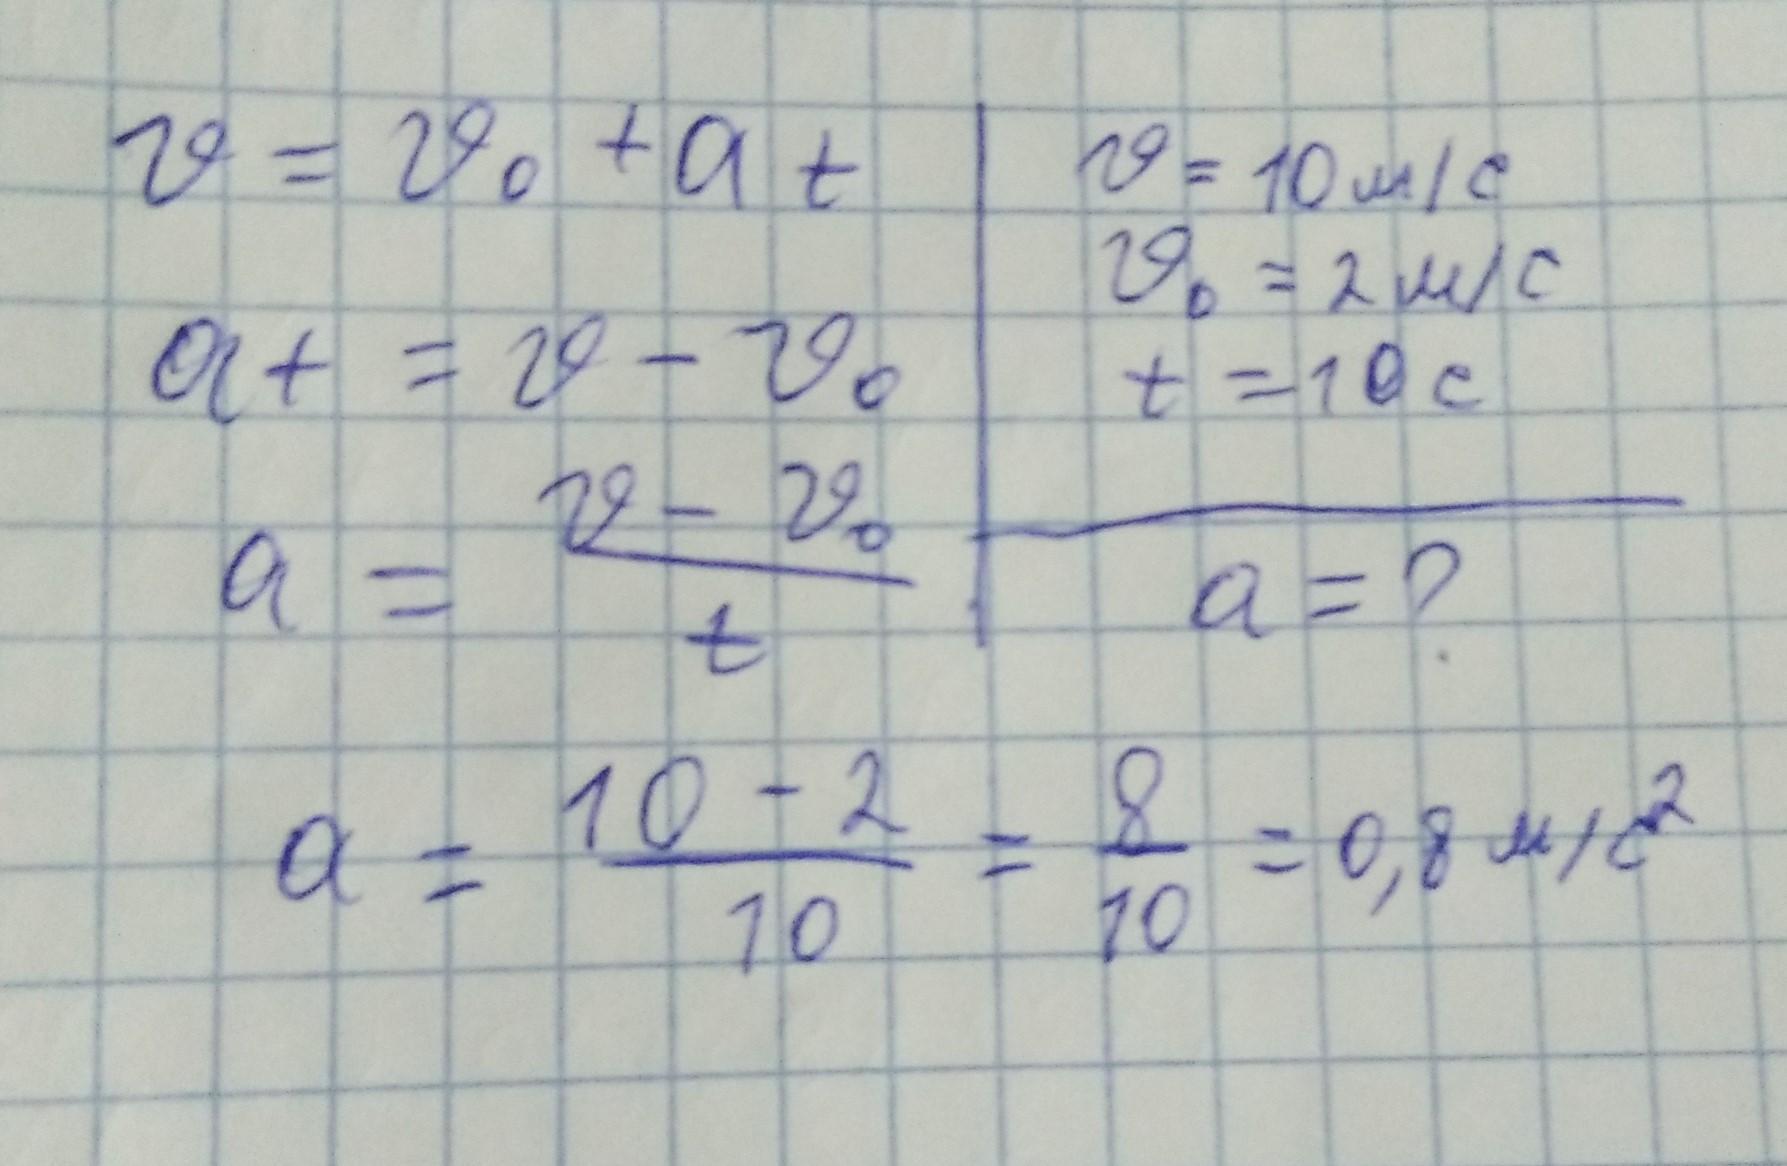 υ = υ₀ + a t
at = υ - υ₀
a = (υ - υ₀) / t
υ = 10 м/с
υ₀ = 2 м/с
t = 10 с
a = ?
a = (10 - 2) / 10 = 8/10 = 0,8 м/с²